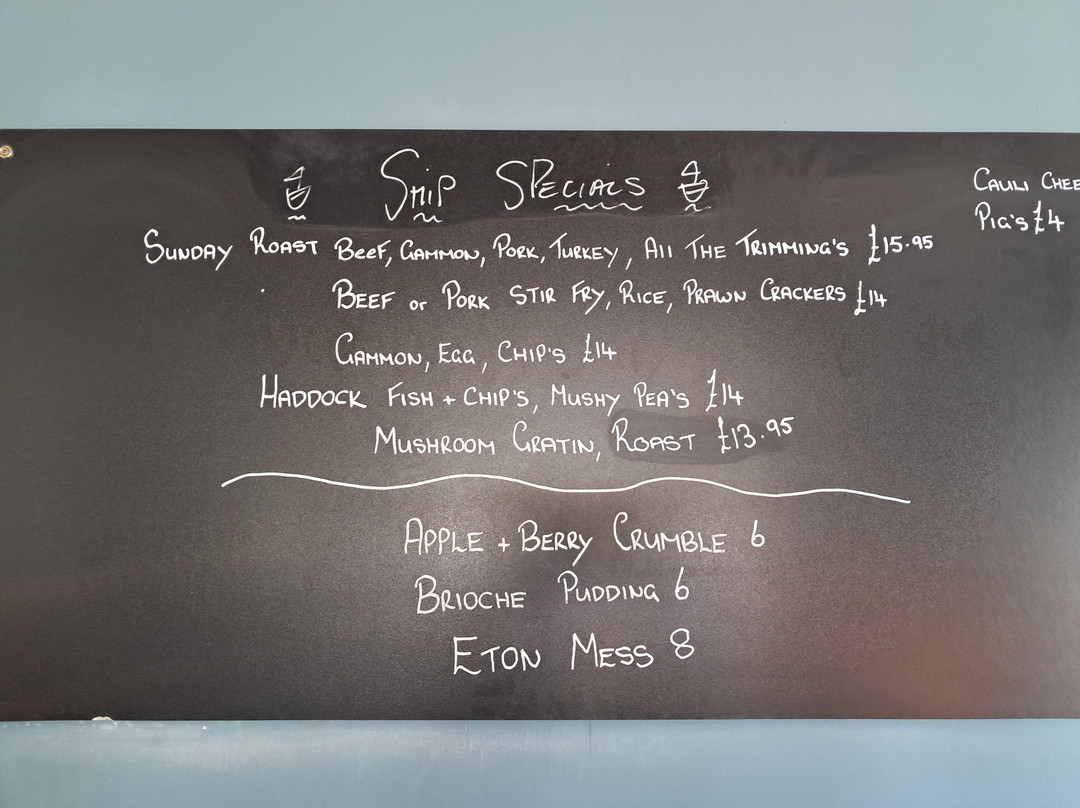 Ship Specials
Sunday Roast Beef, Gammon, Pork, Turkey, All The Trimming's £15.95
Beef or Pork Stir Fry, Rice, Prawn Crackers £14
Gammon, Egg, Chip's £14
Haddock Fish + Chip's, Mushy Pea's £14
Mushroom Gratin, Roast £13.95
Apple + Berry Crumble 6
Brioche Pudding 6
Eton Mess 8
Cauli Chee
Pig's £4